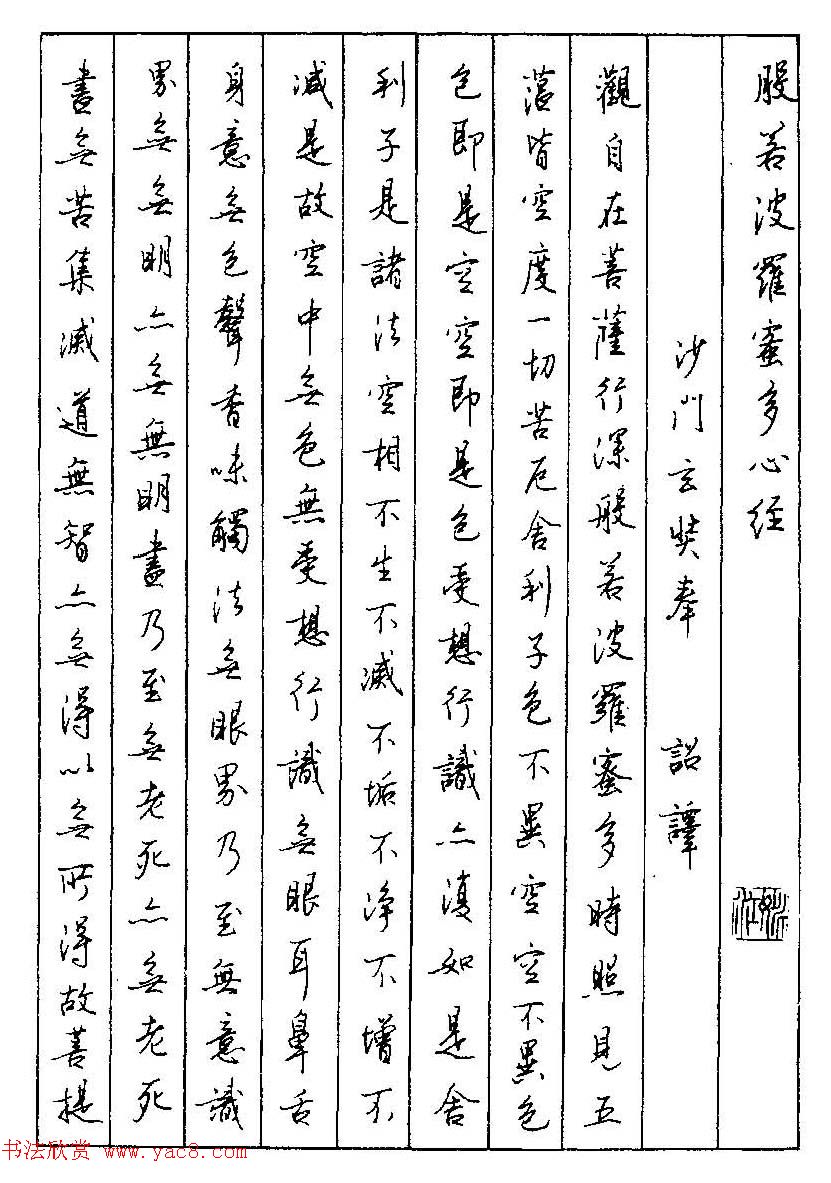 般若波羅蜜多心经
沙門玄奘奉 詔譯
觀自在菩薩行深般若波羅蜜多時照見五
蕴皆空度一切苦厄舍利子色不異空空不異色
色即是空空即是色受想行識亦復如是舍
利子是諸法空相不生不滅不垢不净不增不
滅是故空中無色無受想行識無眼耳鼻舌
身意無色聲香味觸法無眼界乃至無意識
界無無明亦無無明盡乃至無老死亦無老死
盡無苦集滅道無智亦無得以無所得故菩提
书法欣赏 www.yac8.com